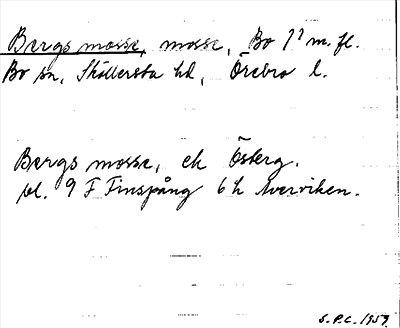 Bergs mosse, mosse, Bo 1² m. fl.
Bo sn, Skyllersta hd, Örebro l.
Bergs mosse, ek Österg.
bl. 9 F Finspång 6 h Averviken.
S.P.C. 1959.